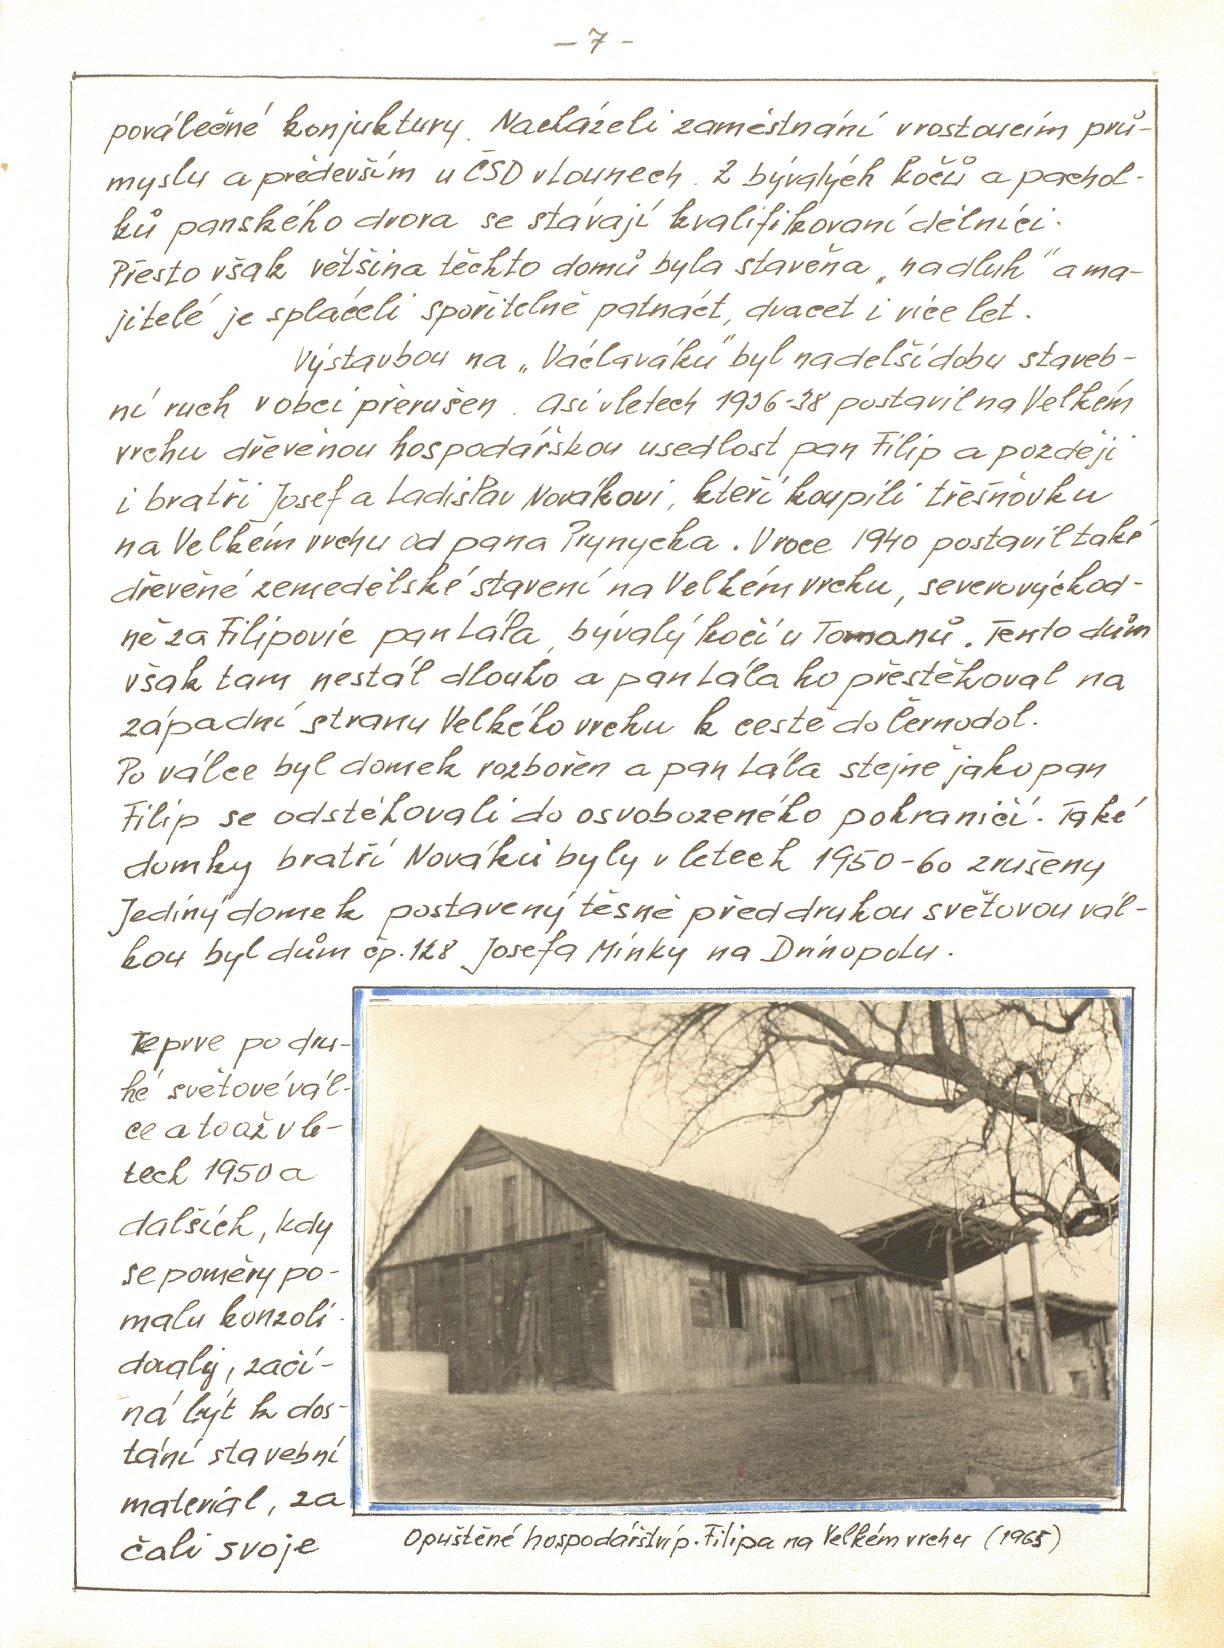 – 7 –
poválečné konjuktury. Nacházeli zaměstnání v rostoucím prů-
myslu a především u ČSD v Lounech. Z bývalých kočů a pachol-
ků panského dvora se stávají kvalifikovaní dělníci.
Přesto však většina těchto domů byla stavěna „na dluh" a ma-
jitelé je spláceli spořitelně patnáct, dvacet i více let.
Výstavbou na „Václaváku" byl na delší dobu staveb-
ní ruch v obci přerušen. Asi v letech 1936-38 postavil na Velkém
vrchu dřevěnou hospodářskou usedlost pan Filip a později
i bratři Josef a Ladislav Novákovi, kteří koupili třešňovku
na Velkém vrchu od pana Prynycha. V roce 1940 postavil také
dřevěné zemedělské stavení na Velkém vrchu, severovýchod-
ně za Filipovic pan Lála, bývalý kočí u Tomanů. Tento dům
však tam nestál dlouho a pan Lála ho přestěhoval na
západní stranu Velkého vrchu k cestě do Černodol.
Po válce byl domek rozbořen a pan Lála stejně jako pan
Filip se odstěhovali do osvobozeného pohraničí. Také
domky bratří Nováků byly v letech 1950-60 zrušeny
Jediný domek postavený těsně před druhou světovou vál-
kou byl dům čp. 128 Josefa Minky na Drinopolu.
Teprve po dru-
hé světové vál-
ce a to až v le-
tech 1950 a
dalších, kdy
se poměry po-
malu konzoli-
dovaly, začí-
ná být k dos-
tání stavební
materiál, za
čali svoje
Opuštěné hospodářství p. Filipa na Velkém vrchu (1965)